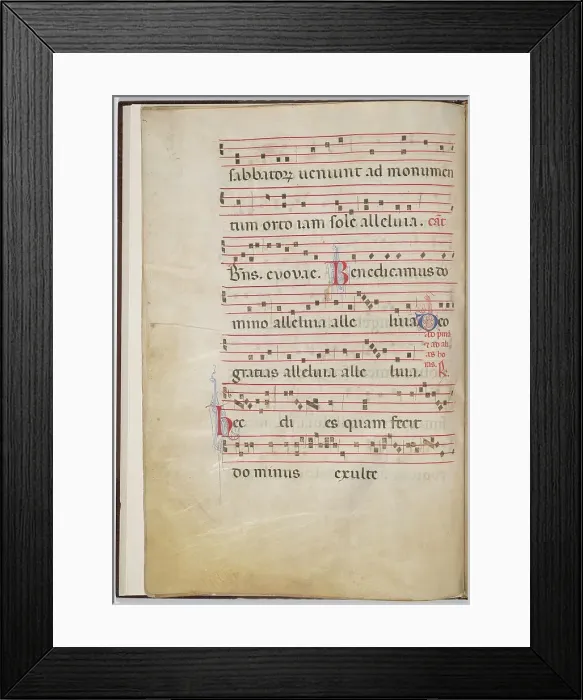 sabbatoꝝ ueniunt ad monumen
tum orto iam sole alleluia. cāt
Bñs. evovae. Benedicamus do
mino alleluia alle luia Deo
gratias alleluia alle luia.
hec di es quam fecit
do minus exulte